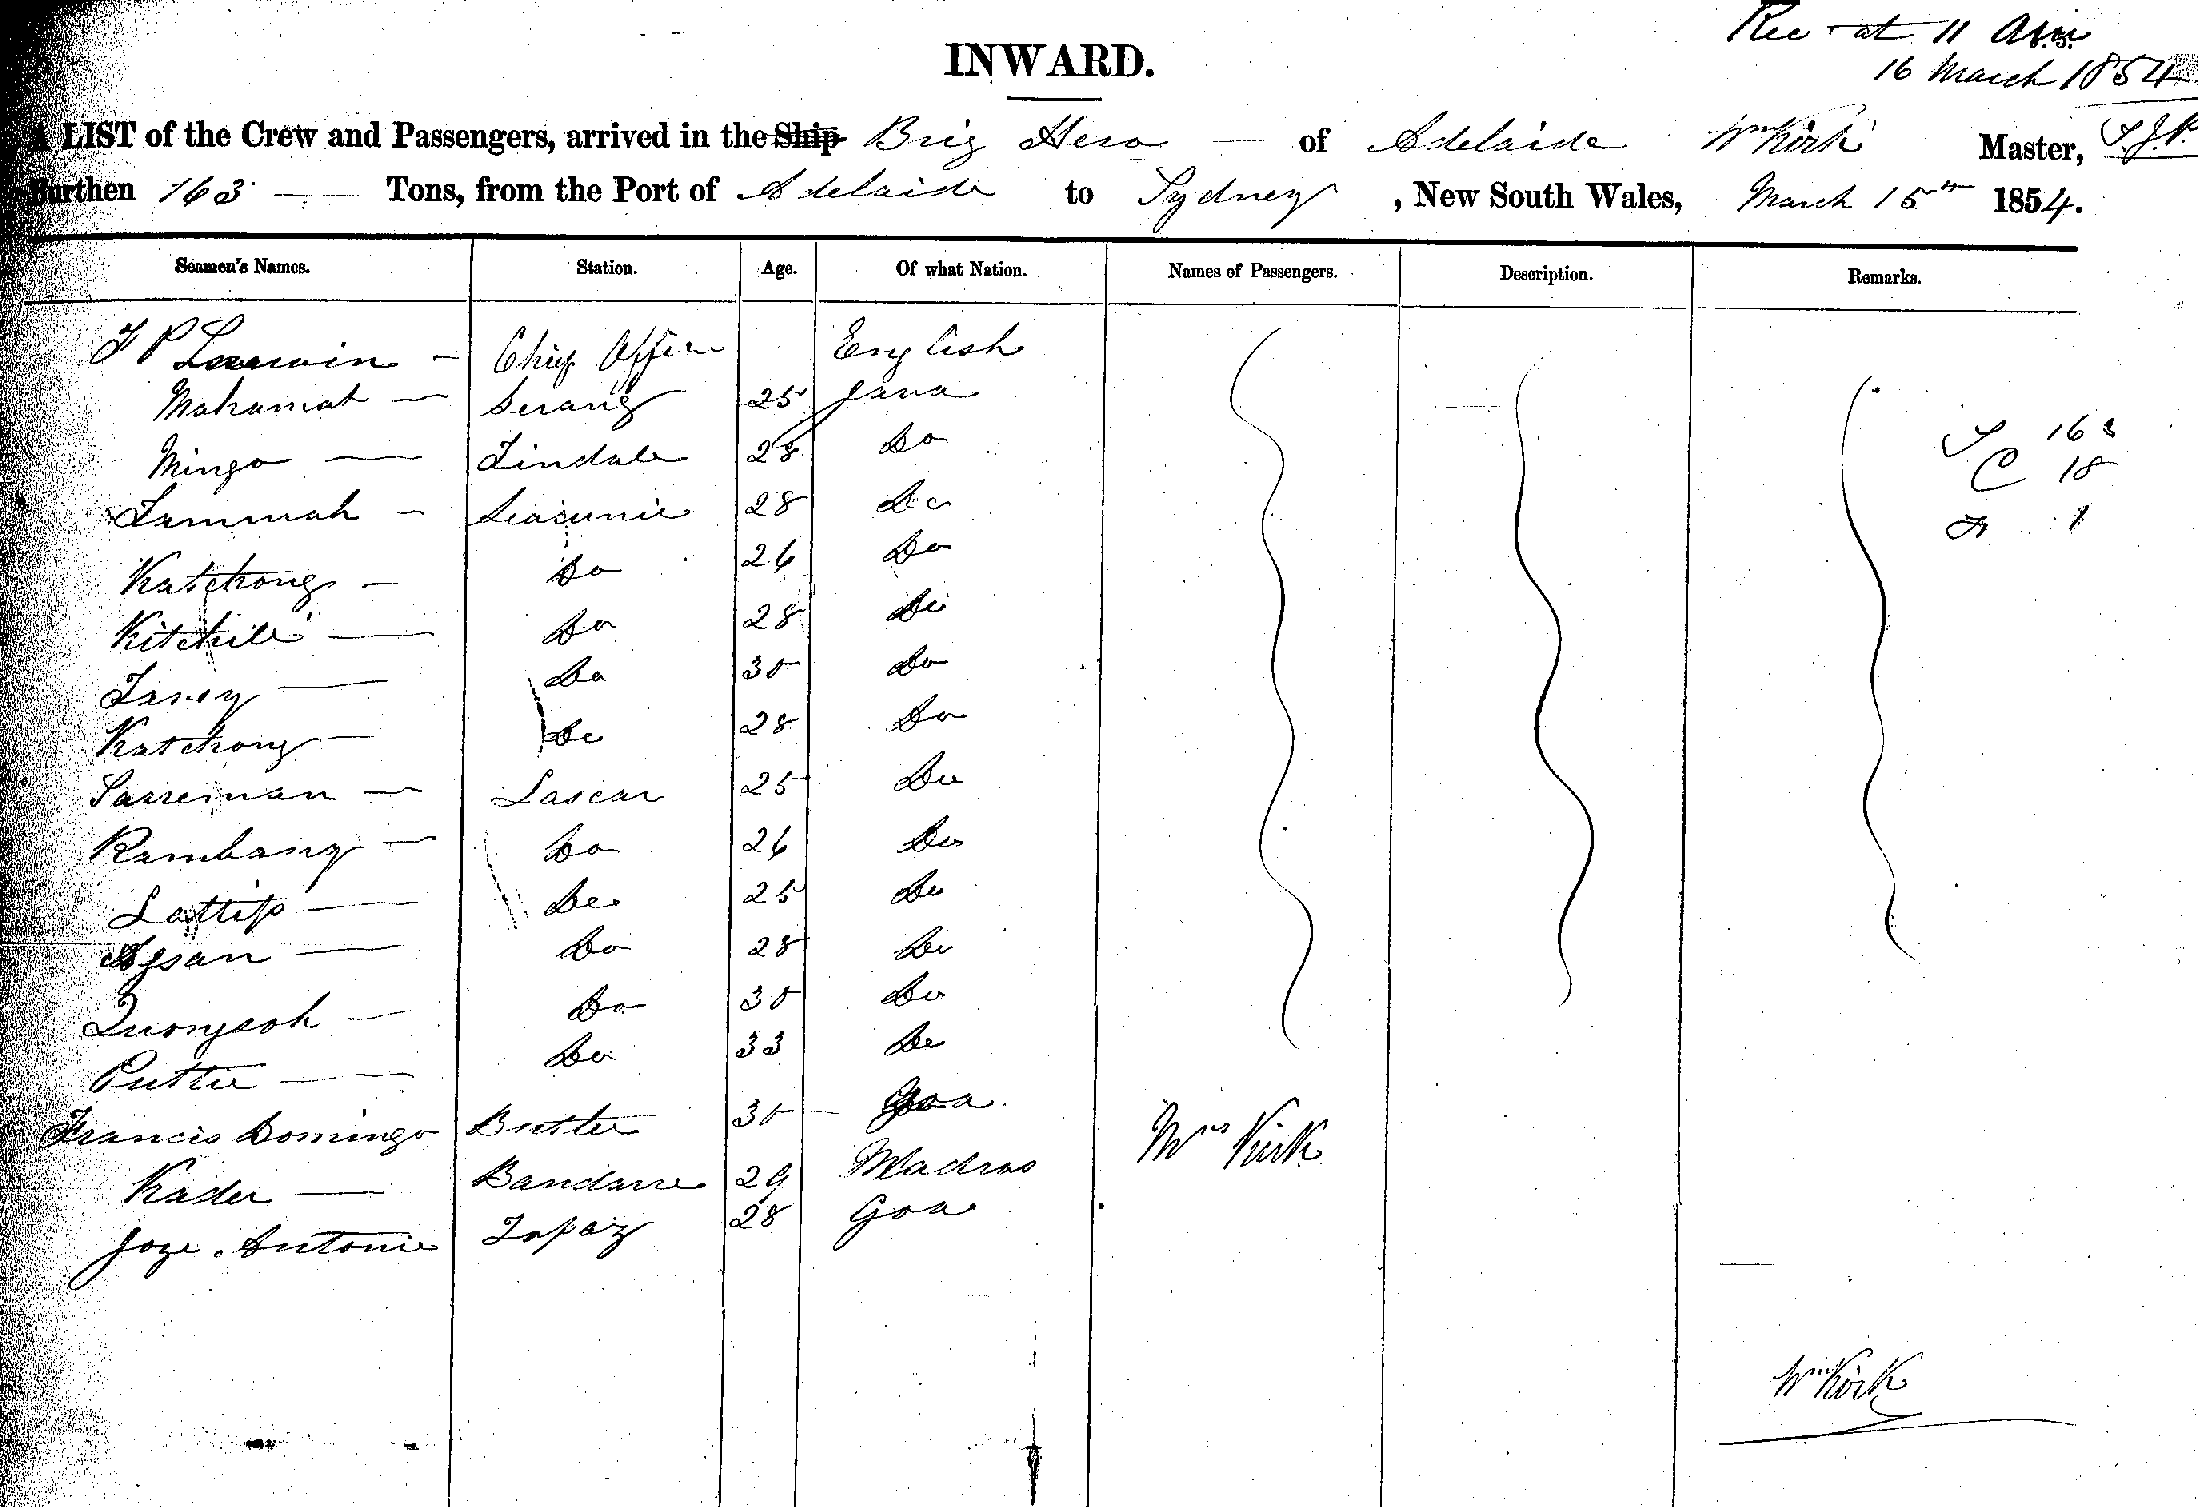 Rec at 11 am
16 March 1854
INWARD.
A LIST of the Crew and Passengers, arrived in the Ship Brig Hero — of Adelaide Wm Kirk Master,
Burthen 163 — Tons, from the Port of Adelaide to Sydney, New South Wales, March 15th 1854.
Seamen's Names. Station. Age. Of what Nation. Names of Passengers. Description. Remarks.
J P — Chief Officer English
Mahamat — Serang 25 Java
Mingo — Tindale 28 Do
T 163
C 18
P 1
Jammah — Seacunie 28 Do
Katchong — Do 26 Do
Kitchile — Do 28 Do
Do 30 Do
Katchong — Do 28 Do
Sarreman — Lascar 25 Do
Rambang — Do 26 Do
Lattip — Do 25 Do
Assan — Do 28 Do
Do 30 Do
Puttie — Do 33 Do
Francis Domingo Butler 30 — Goa
Mrs Kirk
Kader — Bandarre 29 Madras
Joze Antonie Topaz 28 Goa
Wm Kirk